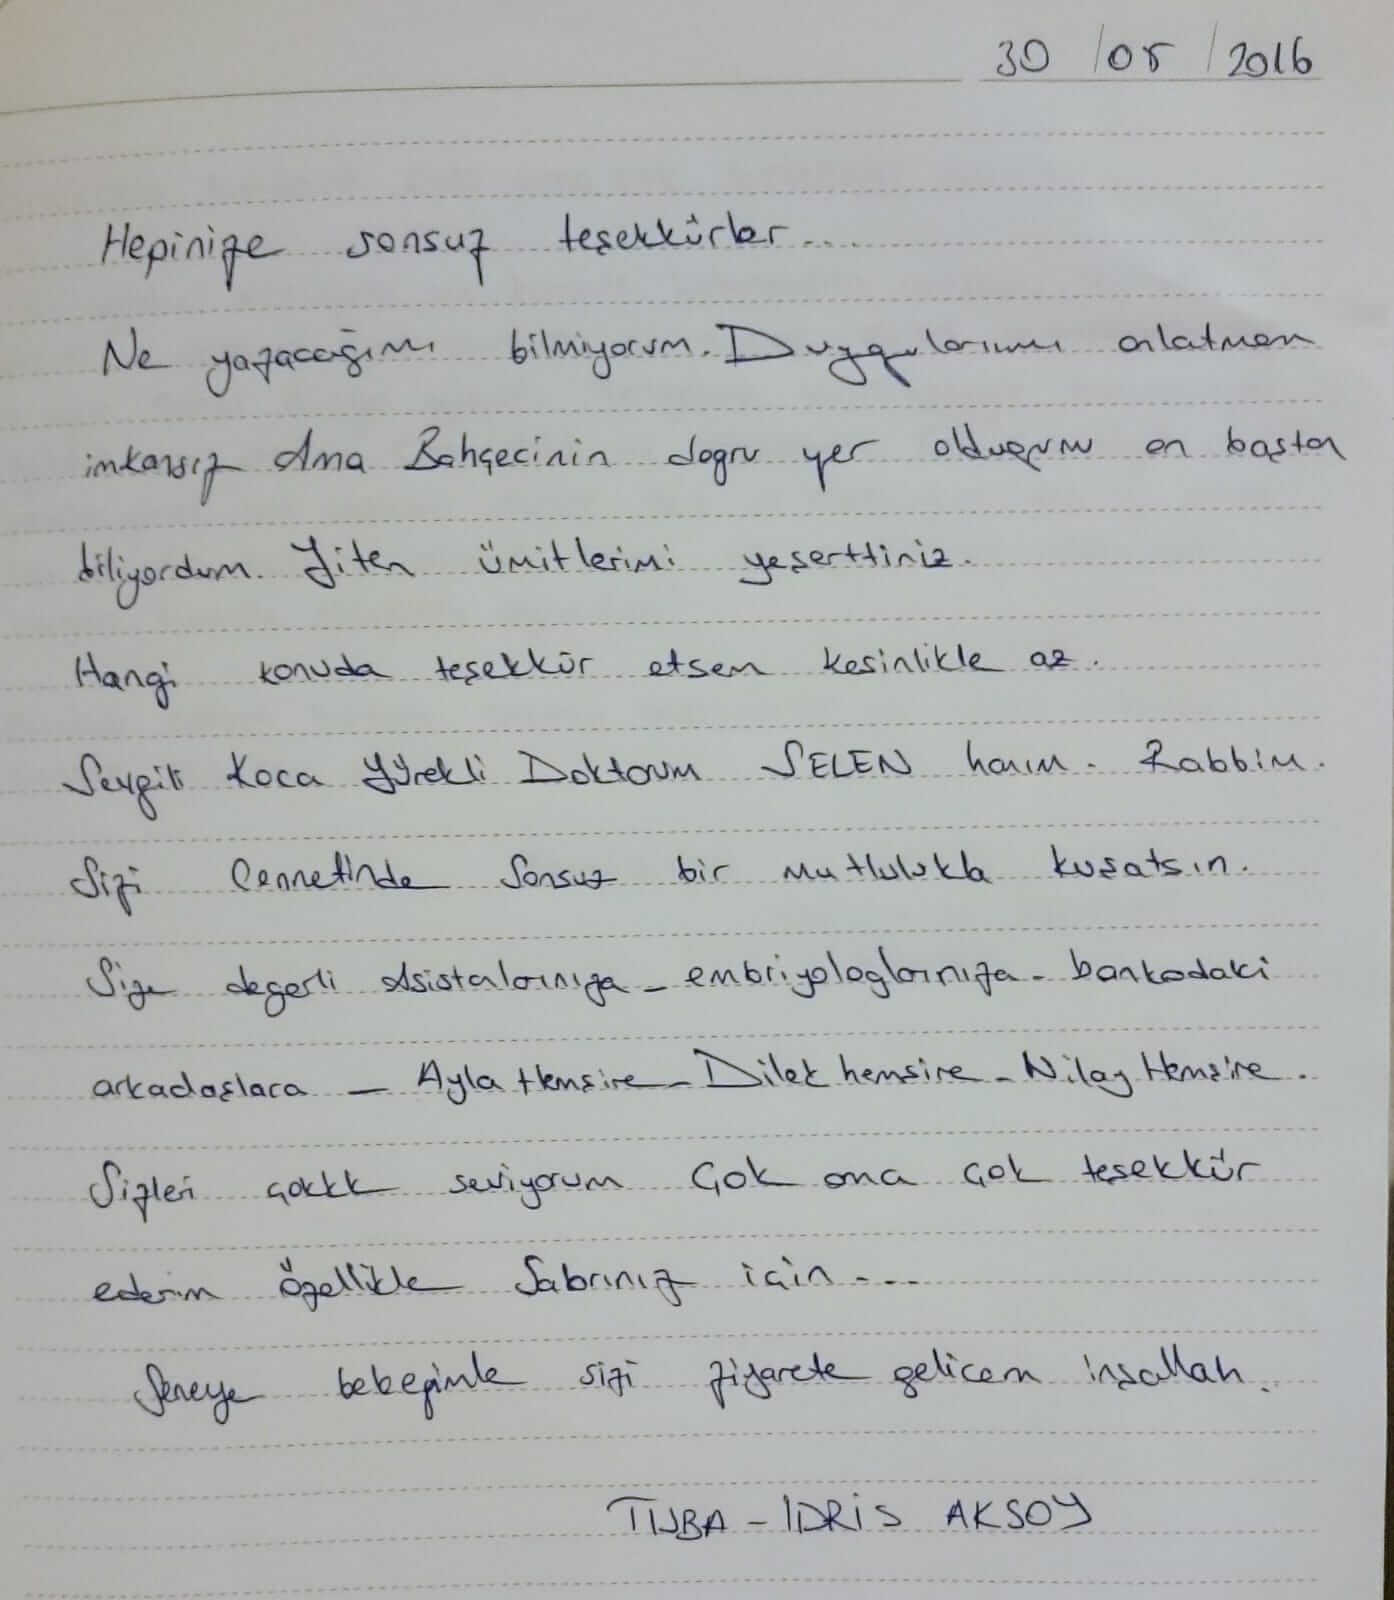 30 / 05 / 2016
Hepinize sonsuz teşekkürler....
Ne yazacağımı bilmiyorum. Duygularımı anlatmam
imkansız Ama Bahçecinin dogru yer olduğunu en baştan
biliyordum. Yiten ümitlerimi yeşerttiniz.
Hangi konuda teşekkür etsem kesinlikle az.
Sevgili Koca Yürekli Doktorum SELEN hanım. Rabbim.
Sizi Cennetinde Sonsuz bir mutlulukla kuşatsın.
Size degerli Asistalarınıza - embriyologlarınıza - bankodaki
arkadaşlara - Ayla Hemşire - Dilek hemsire - Nilay Hemşire.
Sizleri çokkk seviyorum Çok ama çok teşekkür
ederim özellikle Sabrınız için....
Seneye bebeğimle sizi ziyarete gelicem inşallah.
TUBA - IDRİS AKSOY